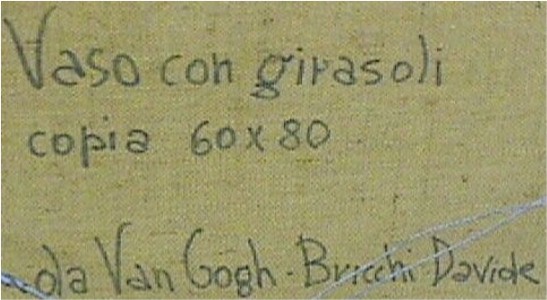 Vaso con girasoli
copia 60x80
da Van Gogh - Bricchi Davide